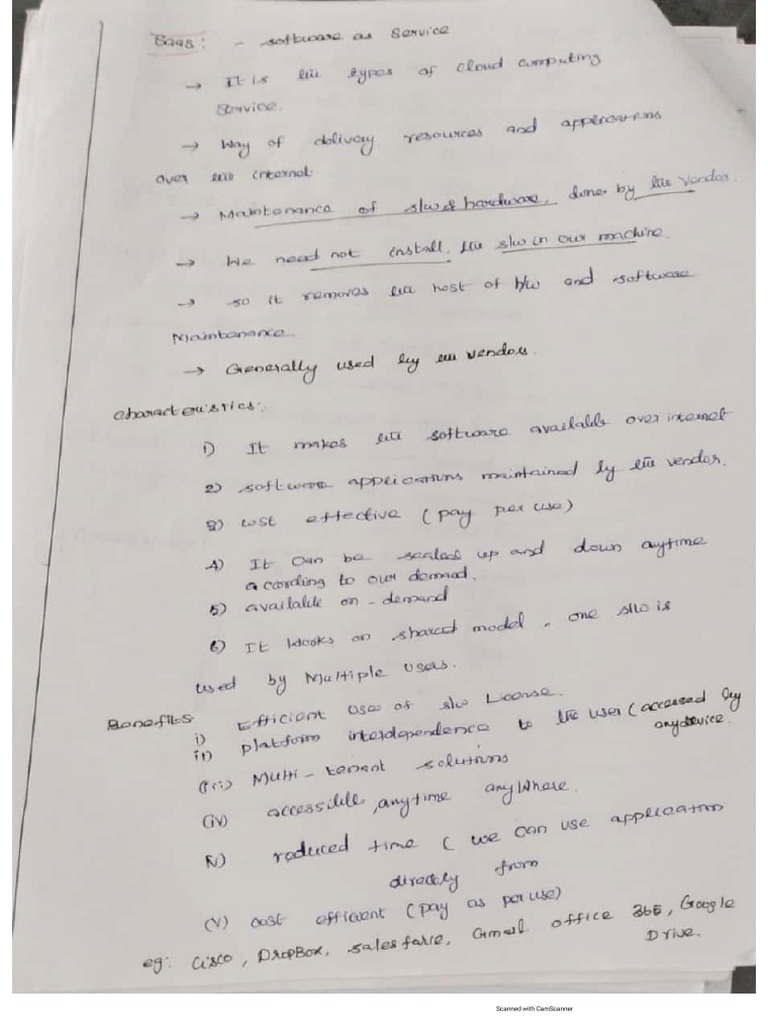 Saas: - Software as Service
→ It is the types of cloud computing
Service.
→ Way of delivery resources and applications
over the internet
→ Maintenance of s/w & hardware, done by the vendor.
→ We need not install, the s/w in our machine.
→ so it removes the host of h/w and software
Maintenance.
→ Generally used by the vendors.
Characteristics:
1) It makes the software available over internet
2) software applications maintained by the vendor.
3) cost effective (pay per use)
4) It can be scaled up and down anytime
acording to our demand.
5) available on-demand
6) It works on shared model, one s/w is
used by Multiple Users.
Benefits
i) Efficient Use of s/w License.
ii) platform interdependence to the user (accessed by
anydevice.
(iii) Multi-tenant solutions
(iv) accessible, anytime anywhere.
iv) reduced time ( we can use application
directly from
(v) cost efficient (pay as per use)
eg: Cisco, DropBox, salesforce, Gmail office 365, Google
Drive.
Scanned with CamScanner